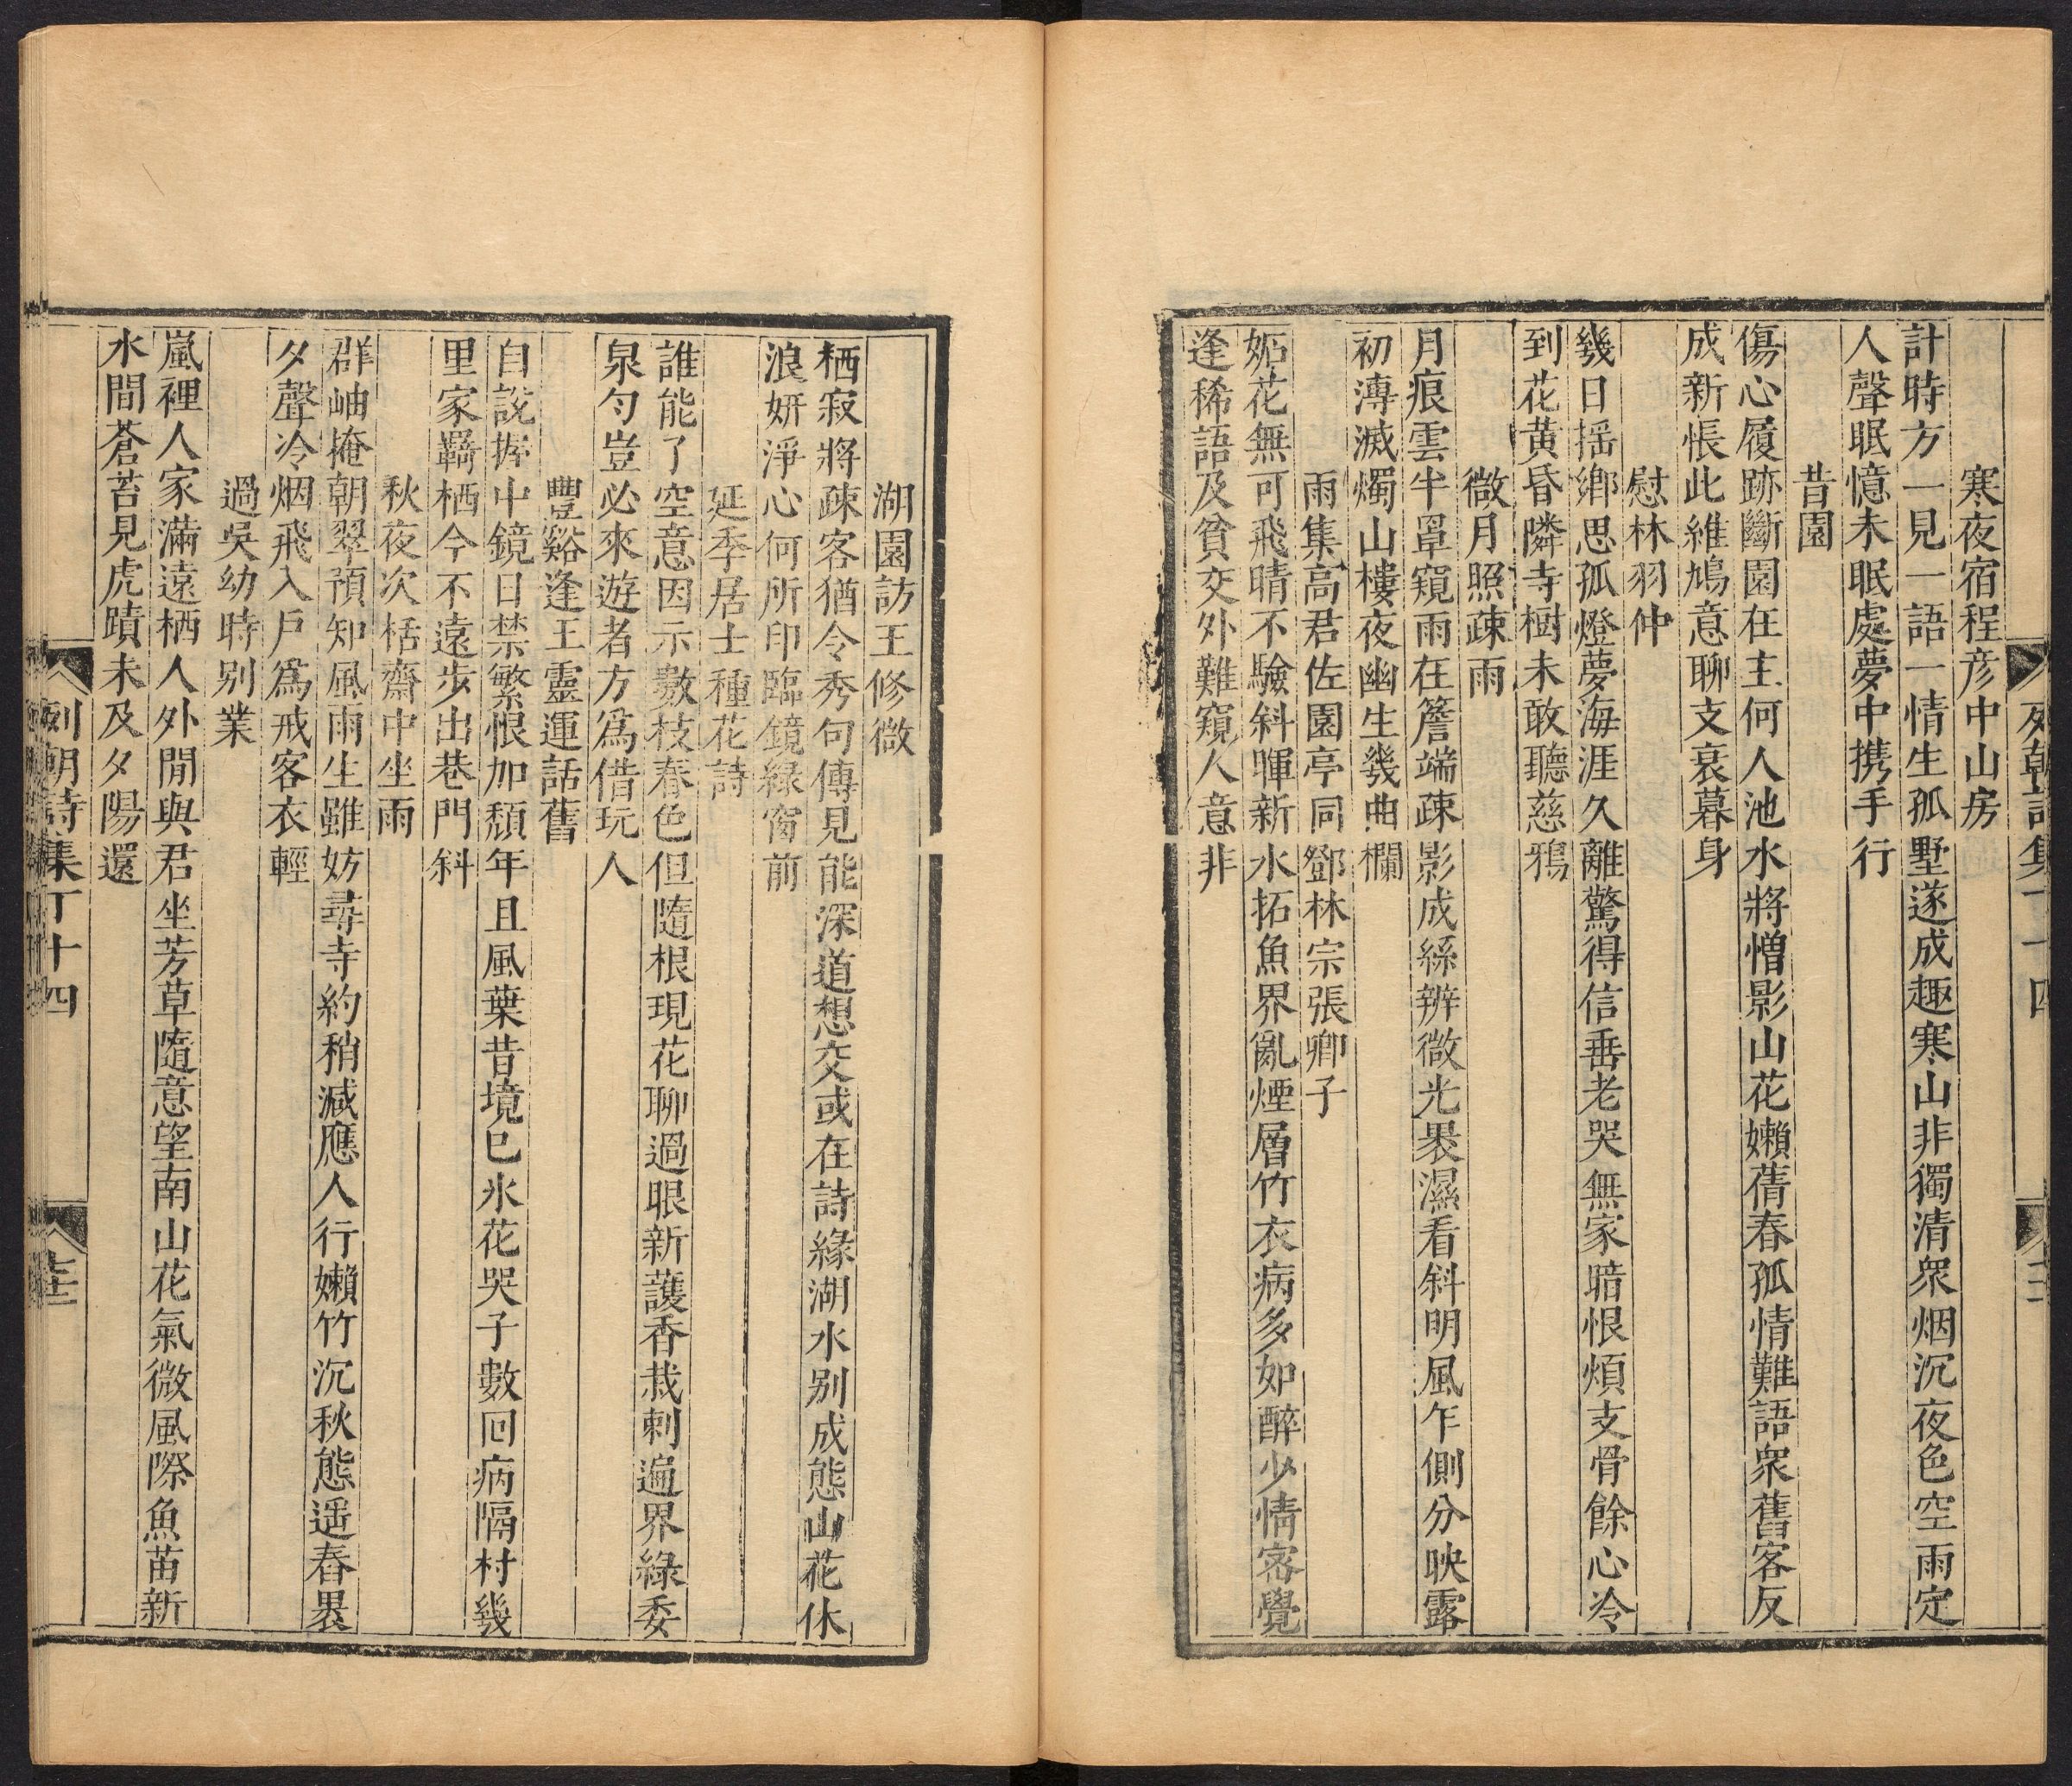 寒夜宿程彦中山房
計時方一見一語一情生孤墅遂成趣寒山非獨清衆烟沉夜色空雨定
人聲眠憶未眠處夢中携手行
昔園
傷心履跡斷園在主何人池水將憎影山花嬾蒨春孤情難語衆舊客反
成新悵此維鳩意聊支衰暮身
慰林羽仲
幾日揺鄉思孤燈夢海涯久離驚得信垂老哭無家暗恨煩支骨餘心冷
到花黄昏隣寺樹未敢聽慈鴉
微月照疎雨
月痕雲半罩窺雨在簷端疎影成絲辨微光褁濕看斜明風乍側分映露
初漙滅燭山樓夜幽生幾曲欄
雨集高君佐園亭同鄧林宗張卿子
妬花無可飛晴不驗斜暉新水拓魚界亂煙層竹衣病多如醉少情客覺
逢稀語及貧交外難窺人意非
湖園訪王修微
栖寂將疎客猶令秀句傳見能深道想交或在詩緣湖水别成態山花休
浪妍淨心何所印臨鏡緑窗前
延季居士種花詩
誰能了空意因示數枝春色但隨根現花聊過眼新護香栽剌遍界綠委
泉勺豈必來遊者方爲借玩人
豐谿逢王靈運話舊
自說握中鏡日禁繁恨加頽年且風葉昔境已氷花哭子數回病隔村幾
里家羇栖今不遠步出巷門斜
秋夜次栝齋中坐雨
群岫掩朝翠預知風雨生雖妨尋寺約稍減應人行嬾竹沉秋態遥舂褁
夕聲冷烟飛入戸爲戒客衣輕
過吳幼時别業
嵐裡人家滿遠栖人外閒與君坐芳草隨意望南山花氣微風際魚苗新
水間蒼苔見虎蹟未及夕陽還
列朝詩集丁十四